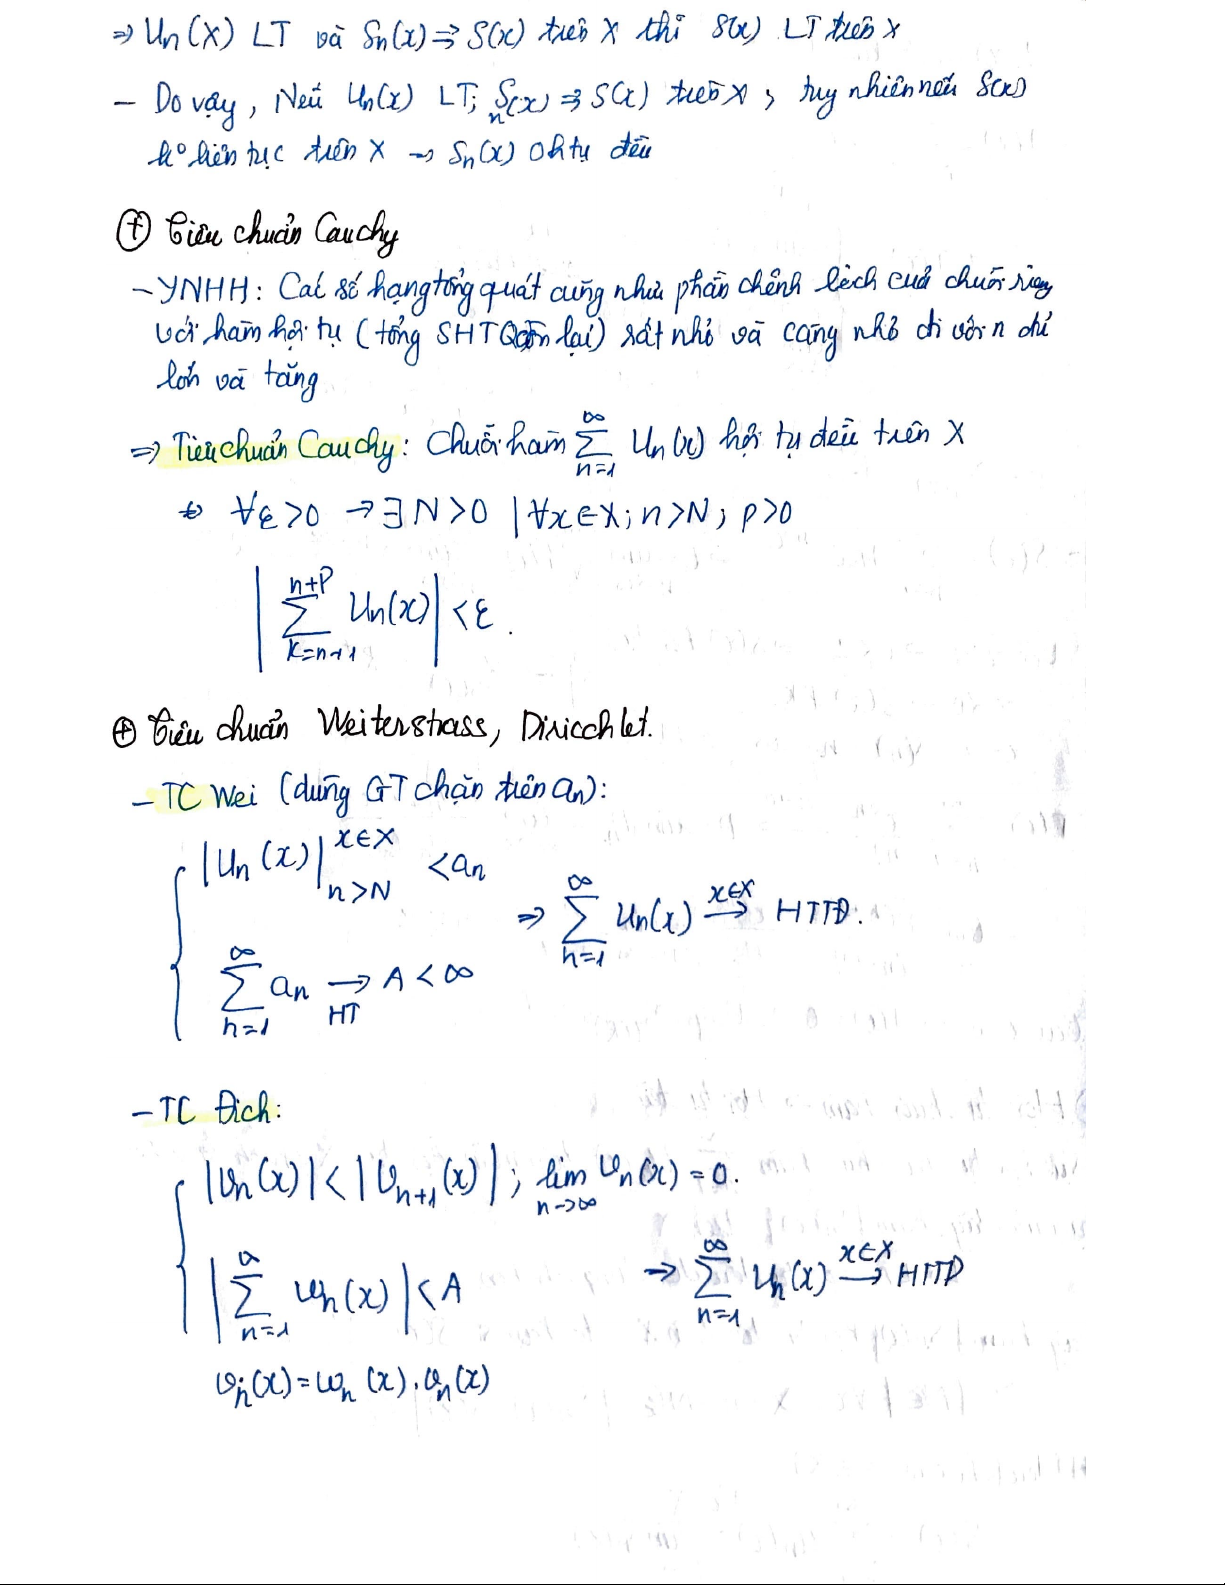 ⇒ Un(x) LT và Sn(x) ⇉ S(x) trên X thì S(x) LT trên X
- Do vậy, Nếu Un(x) LT; Sn(x) ⇉ S(x) trên X, tuy nhiên nếu S(x)
k° liên tục trên X → Sn(x) 0 h tụ đều
⊕ Tiêu chuẩn Cauchy
- YNHH: Các số hạng tổng quát cũng như phần chênh lệch của chuỗi riêng
với hàm hội tụ (tổng SHTQ còn lại) rất nhỏ và càng nhỏ đi với n đủ
lớn và tăng
⇒ Tiêu chuẩn Cauchy: Chuỗi hàm ∑_{n=1}^{∞} Un(x) hội tụ đều trên X
∀ε>0 → ∃N>0 | ∀x∈X; n>N; p>0
|∑_{k=n+1}^{n+p} Un(x)| < ε.
⊕ Tiêu chuẩn Weiterstrass, Diricchlet.
- TC Wei (dùng GT chặn trên an):
|Un(x)|^{x∈X}_{n>N} < an
⇒ ∑_{n=1}^{∞} Un(x) →^{x∈X} HTTĐ.
∑_{n=1}^{∞} an →_{HT} A < ∞
- TC Đich:
|vn(x)| < |v_{n+1}(x)|; lim_{n→∞} vn(x) = 0.
|∑_{n=1}^{a} wn(x)| < A
→ ∑_{n=1}^{∞} Un(x) →^{x∈X} HTTĐ
vn(x) = wn(x).vn(x)